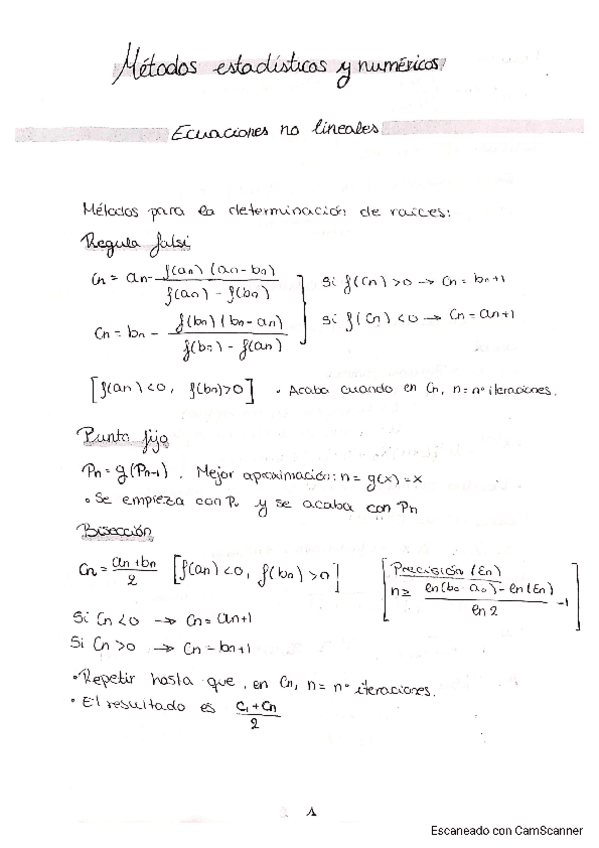 Métodos estadísticos y numéricos
Ecuaciones no lineales
Métodos para la determinación de raíces:
Regula falsi
Cn = an - f(an) (an-bn) / f(an) - f(bn)
Si f(Cn) >0 → Cn = bn+1
Cn = bn - f(bn) (bn-an) / f(bn) - f(an)
Si f(Cn) <0 → Cn = an+1
[f(an) <0, f(bn)>0] • Acaba cuando en Cn, n = nº iteraciones.
Punto fijo
Pn = g(Pn-1). Mejor aproximación: n = g(x) = x
• Se empieza con P y se acaba con Pn
Bisección
Cn = an+bn / 2 [f(an) <0, f(bn) >0]
Precisión (En)
n ≥ ln(b0-a0) - ln(En) / ln 2 - 1
Si Cn <0 → Cn = an+1
Si Cn >0 → Cn = bn+1
• Repetir hasta que, en Cn, n = nº iteraciones.
• El resultado es C1+Cn / 2
1
Escaneado con CamScanner